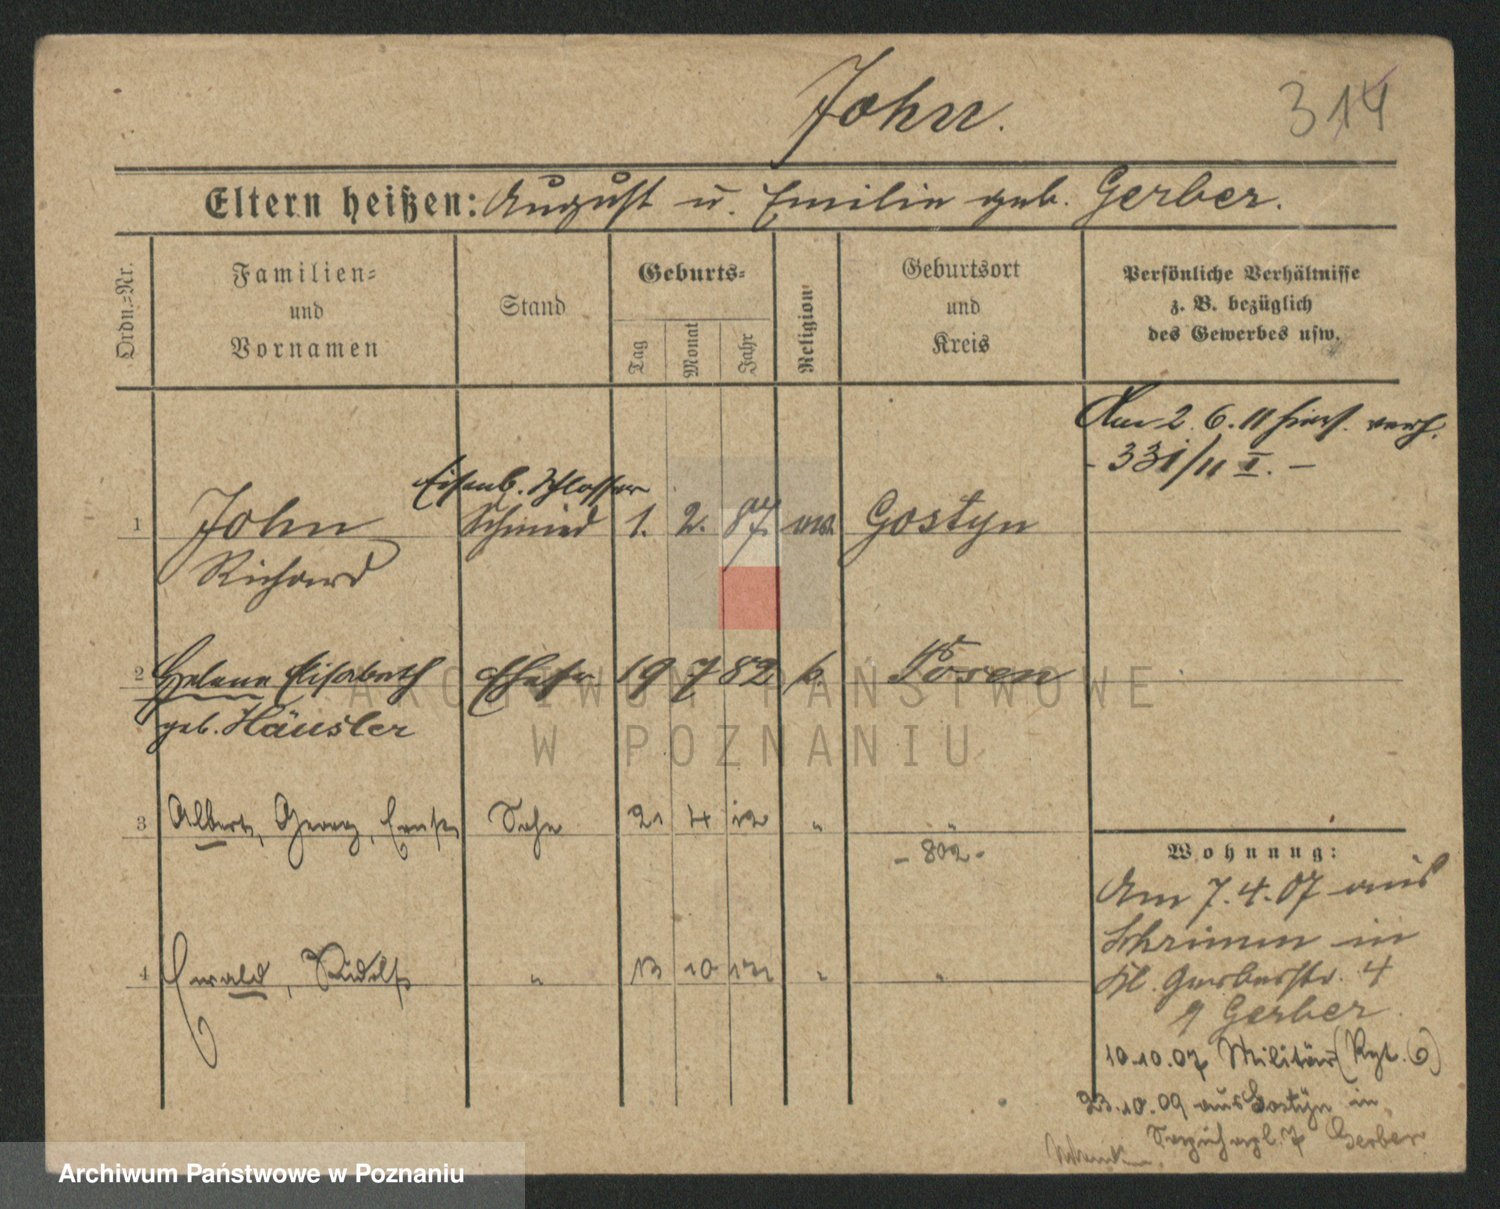 John.
314
Eltern heißen: August u. Emilie geb. Gerber.
Ordn.=Nr.
Familien=
und
Vornamen
Stand
Geburts=
Tag
Monat
Jahr
Religion
Geburtsort
und
Kreis
Persönliche Verhältnisse
z. B. bezüglich
des Gewerbes usw.
Am 2. 6. 11 hier verh.
- 331/11 I. -
Eisenb. Schlosser
1 John Schmied 1. 2. 87. ev. Gostyn
Richard
2 Helene Elisabeth Ehefr 19 7 82 k. Posen
geb. Häusler
3 Albert, Georg, Ernst Sohn 21 4 12 " "
- 802 -
4 Ewald, Rudolf " 13 10 "  "
Wohnung:
Am 7. 4. 07 aus
Schrimm in
Kl. Gerberstr. 4
Gerber
10.10.07 Militär (Rgt. 6)
23.10.09 aus Gostyn in
7 Gerber
ARCHIWUM PAŃSTWOWE
W POZNANIU
Archiwum Państwowe w Poznaniu